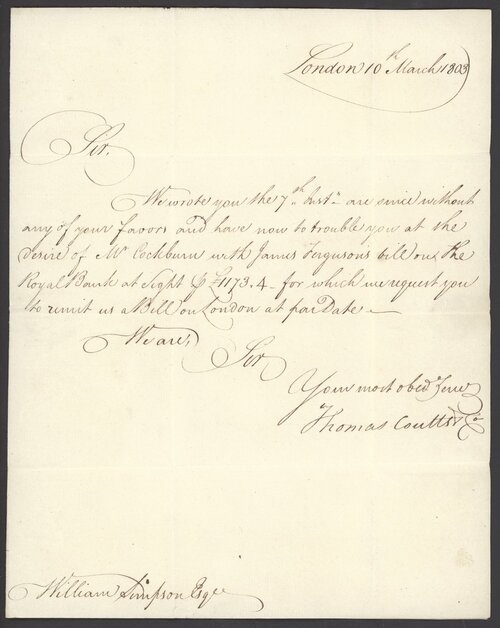 London 10th March 1803
Sir,
We wrote you the 7th Inst are since without
any of your favors and have now to trouble you at the
desire of Mr Cockburn with James Ferguson's bill on The
Royal Bank at Sight £1173.4 for which we request you
to remit us a Bill on London at par Date
We are,
Sir
Your most obed Serv
Thomas Coutts & Co
William Simpson Esqr